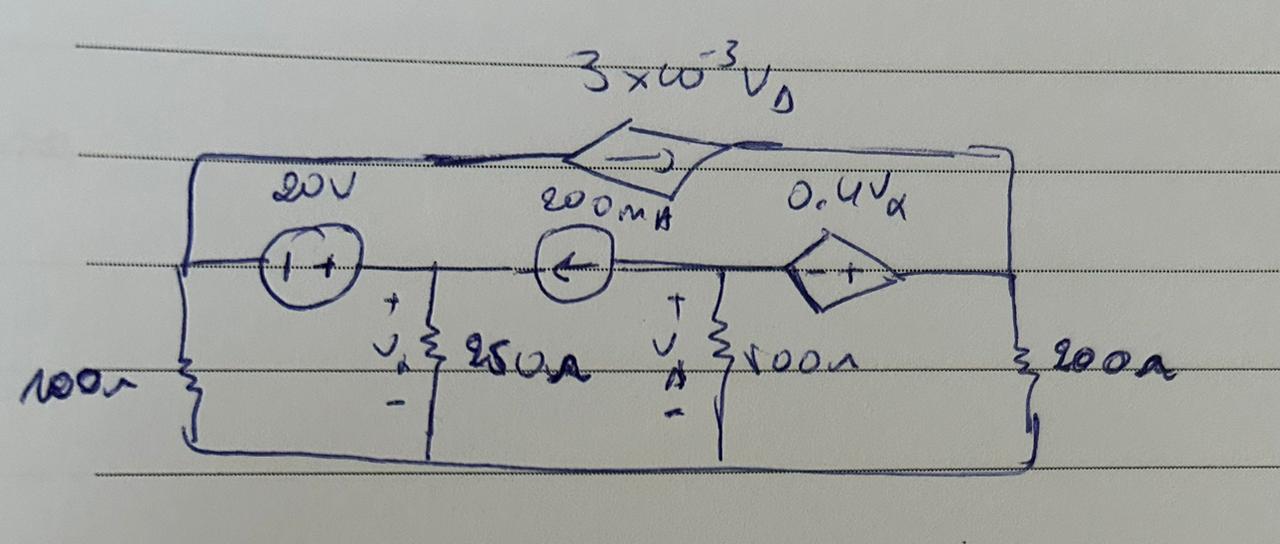 3 × 10⁻³ V_Δ
20V
200mA
0.4V_α
+
+
- +
V
250Ω
V
500Ω
200Ω
100Ω
-
-